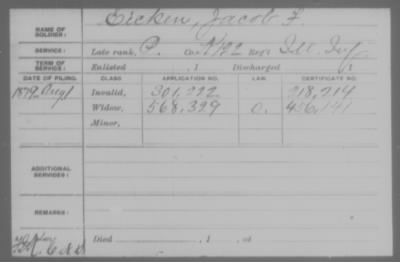 NAME OF SOLDIER: Eicken, Jacob F.
SERVICE: Late rank, P. Co. 7/82 Reg't Ill. Inf.
TERM OF SERVICE: Enlisted , 1 Discharged , 1
DATE OF FILING. CLASS APPLICATION NO. LAW. CERTIFICATE NO.
1879 Invalid, 301,222 218,219
Widow, 568,329 O. 456,141
Minor,
ADDITIONAL SERVICES:
REMARKS:
Died , 1 , at